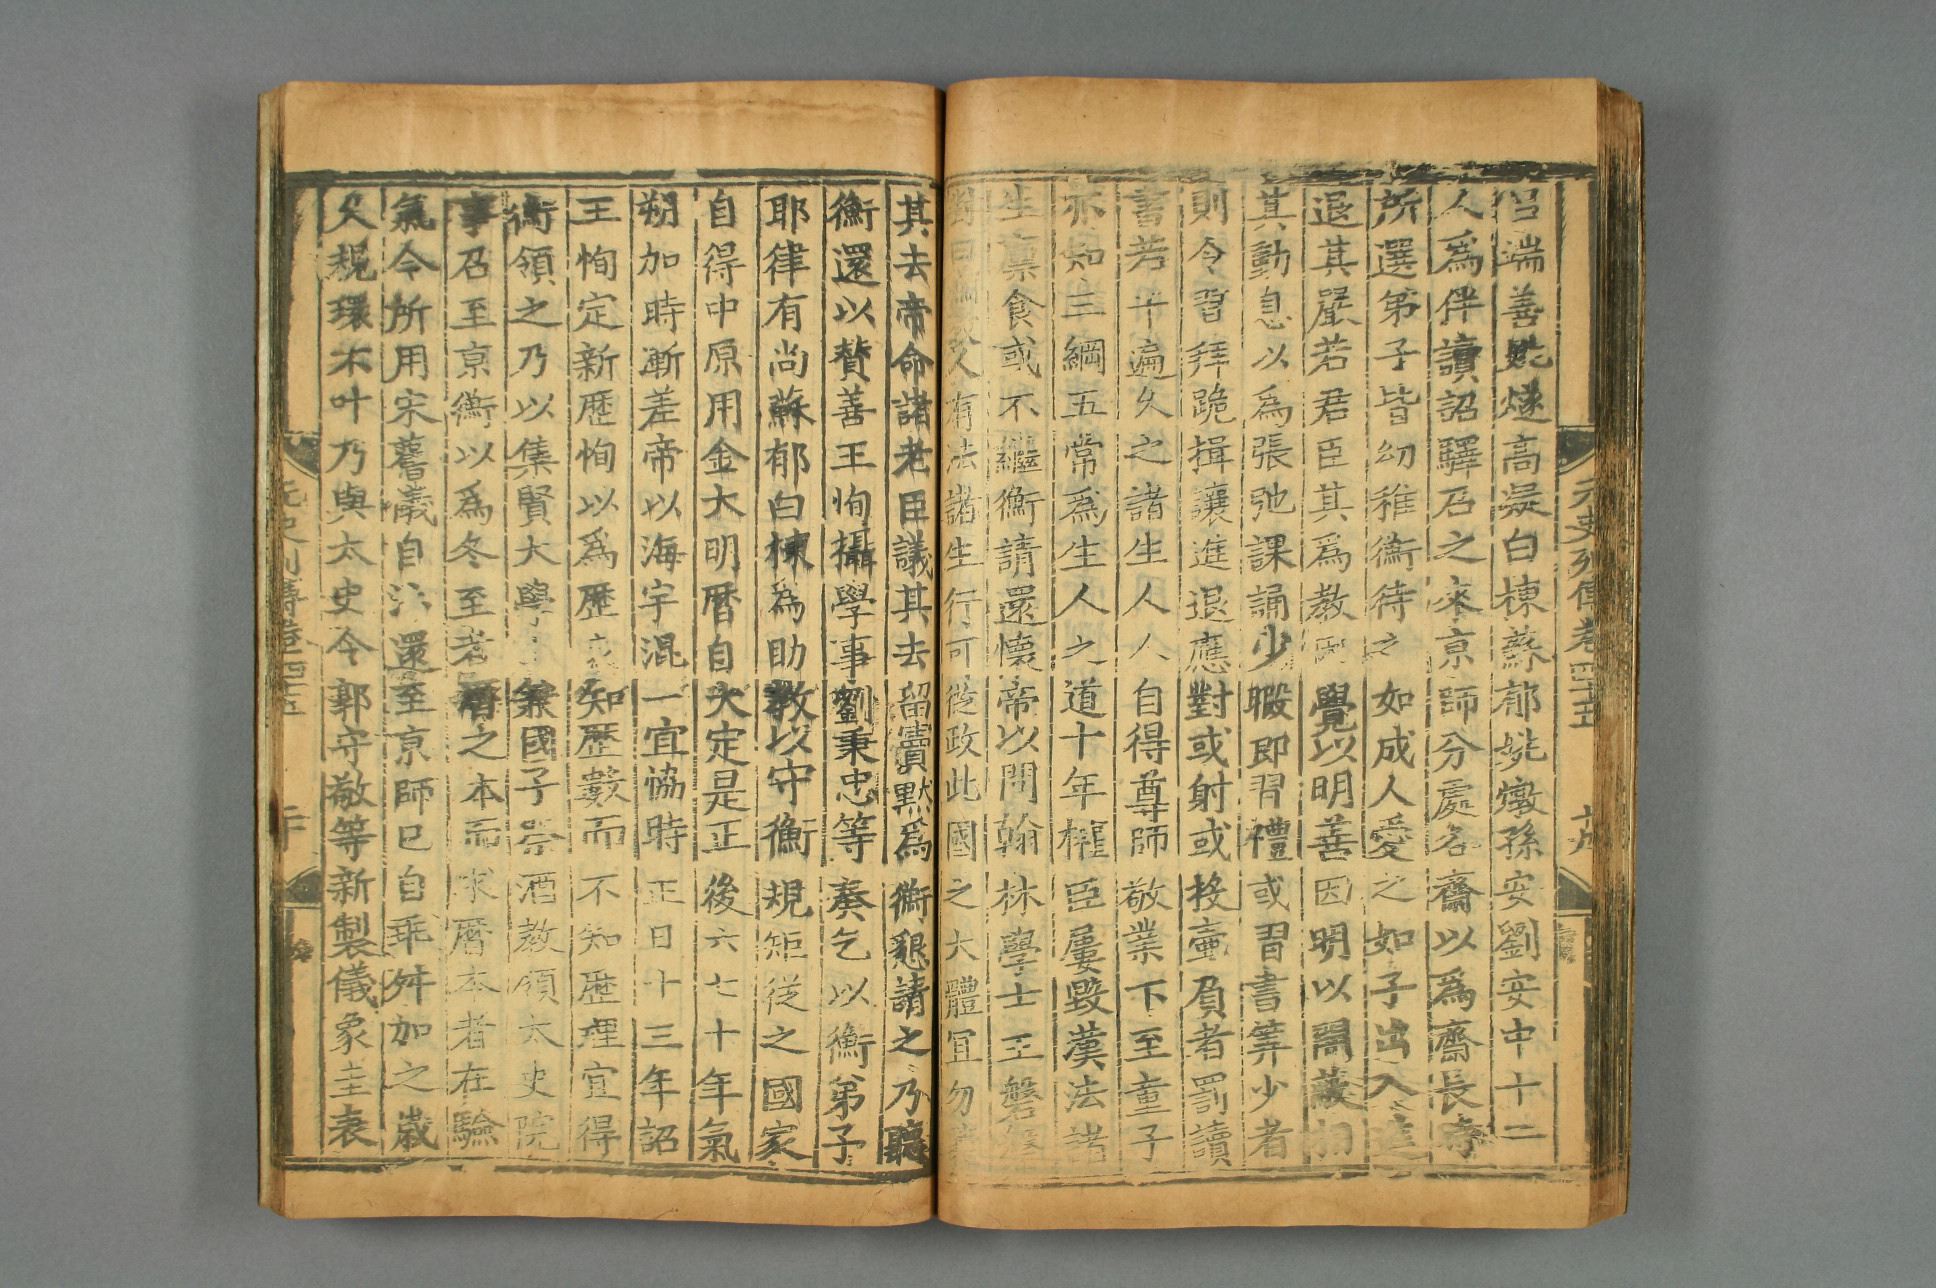 元史列傳卷四十五
十九
呂端善姚燧高凝白棟蘇郁姚燉孫安劉安中十二
人爲伴讀詔驛召之來京師分處各齋以爲齋長時
所選弟子皆幼稚衡待之如成人愛之如子出入進
退其嚴若君臣其爲教因覺以明善因明以開蔽相
其動息以爲張弛課誦少暇即習禮或習書筭少者
則令習拜跪揖讓進退應對或射或投壷負者罰讀
書若干遍乆之諸生人人自得尊師敬業下至童子
亦知三綱五常爲生人之道十年權臣屢毀漢法諸
生廪食或不繼衡請還懷帝以問翰林學士王磐磐
對曰衡教人有法諸生行可從政此國之大體宜勿聽
其去帝命諸老臣議其去留竇默爲衡懇請之乃聽
衡還以賛善王恂攝學事劉秉忠等奏乞以衡弟子
耶律有尚蘇郁白棟爲助教以守衡規矩從之國家
自得中原用金大明曆自大定是正後六七十年氣
朔加時漸差帝以海宇混一宜協時正日十三年詔
王恂定新歷恂以爲歷家知歷數而不知歷理宜得
衡領之乃以集賢大學士兼國子祭酒教領太史院
事召至京衡以爲冬至者曆之本而求曆本者在驗
氣今所用宋舊儀自汴還至京師已自乖舛加之歲
乆規環不叶乃與太史令郭守敬等新製儀象圭表
元史列傳卷四十五
二十